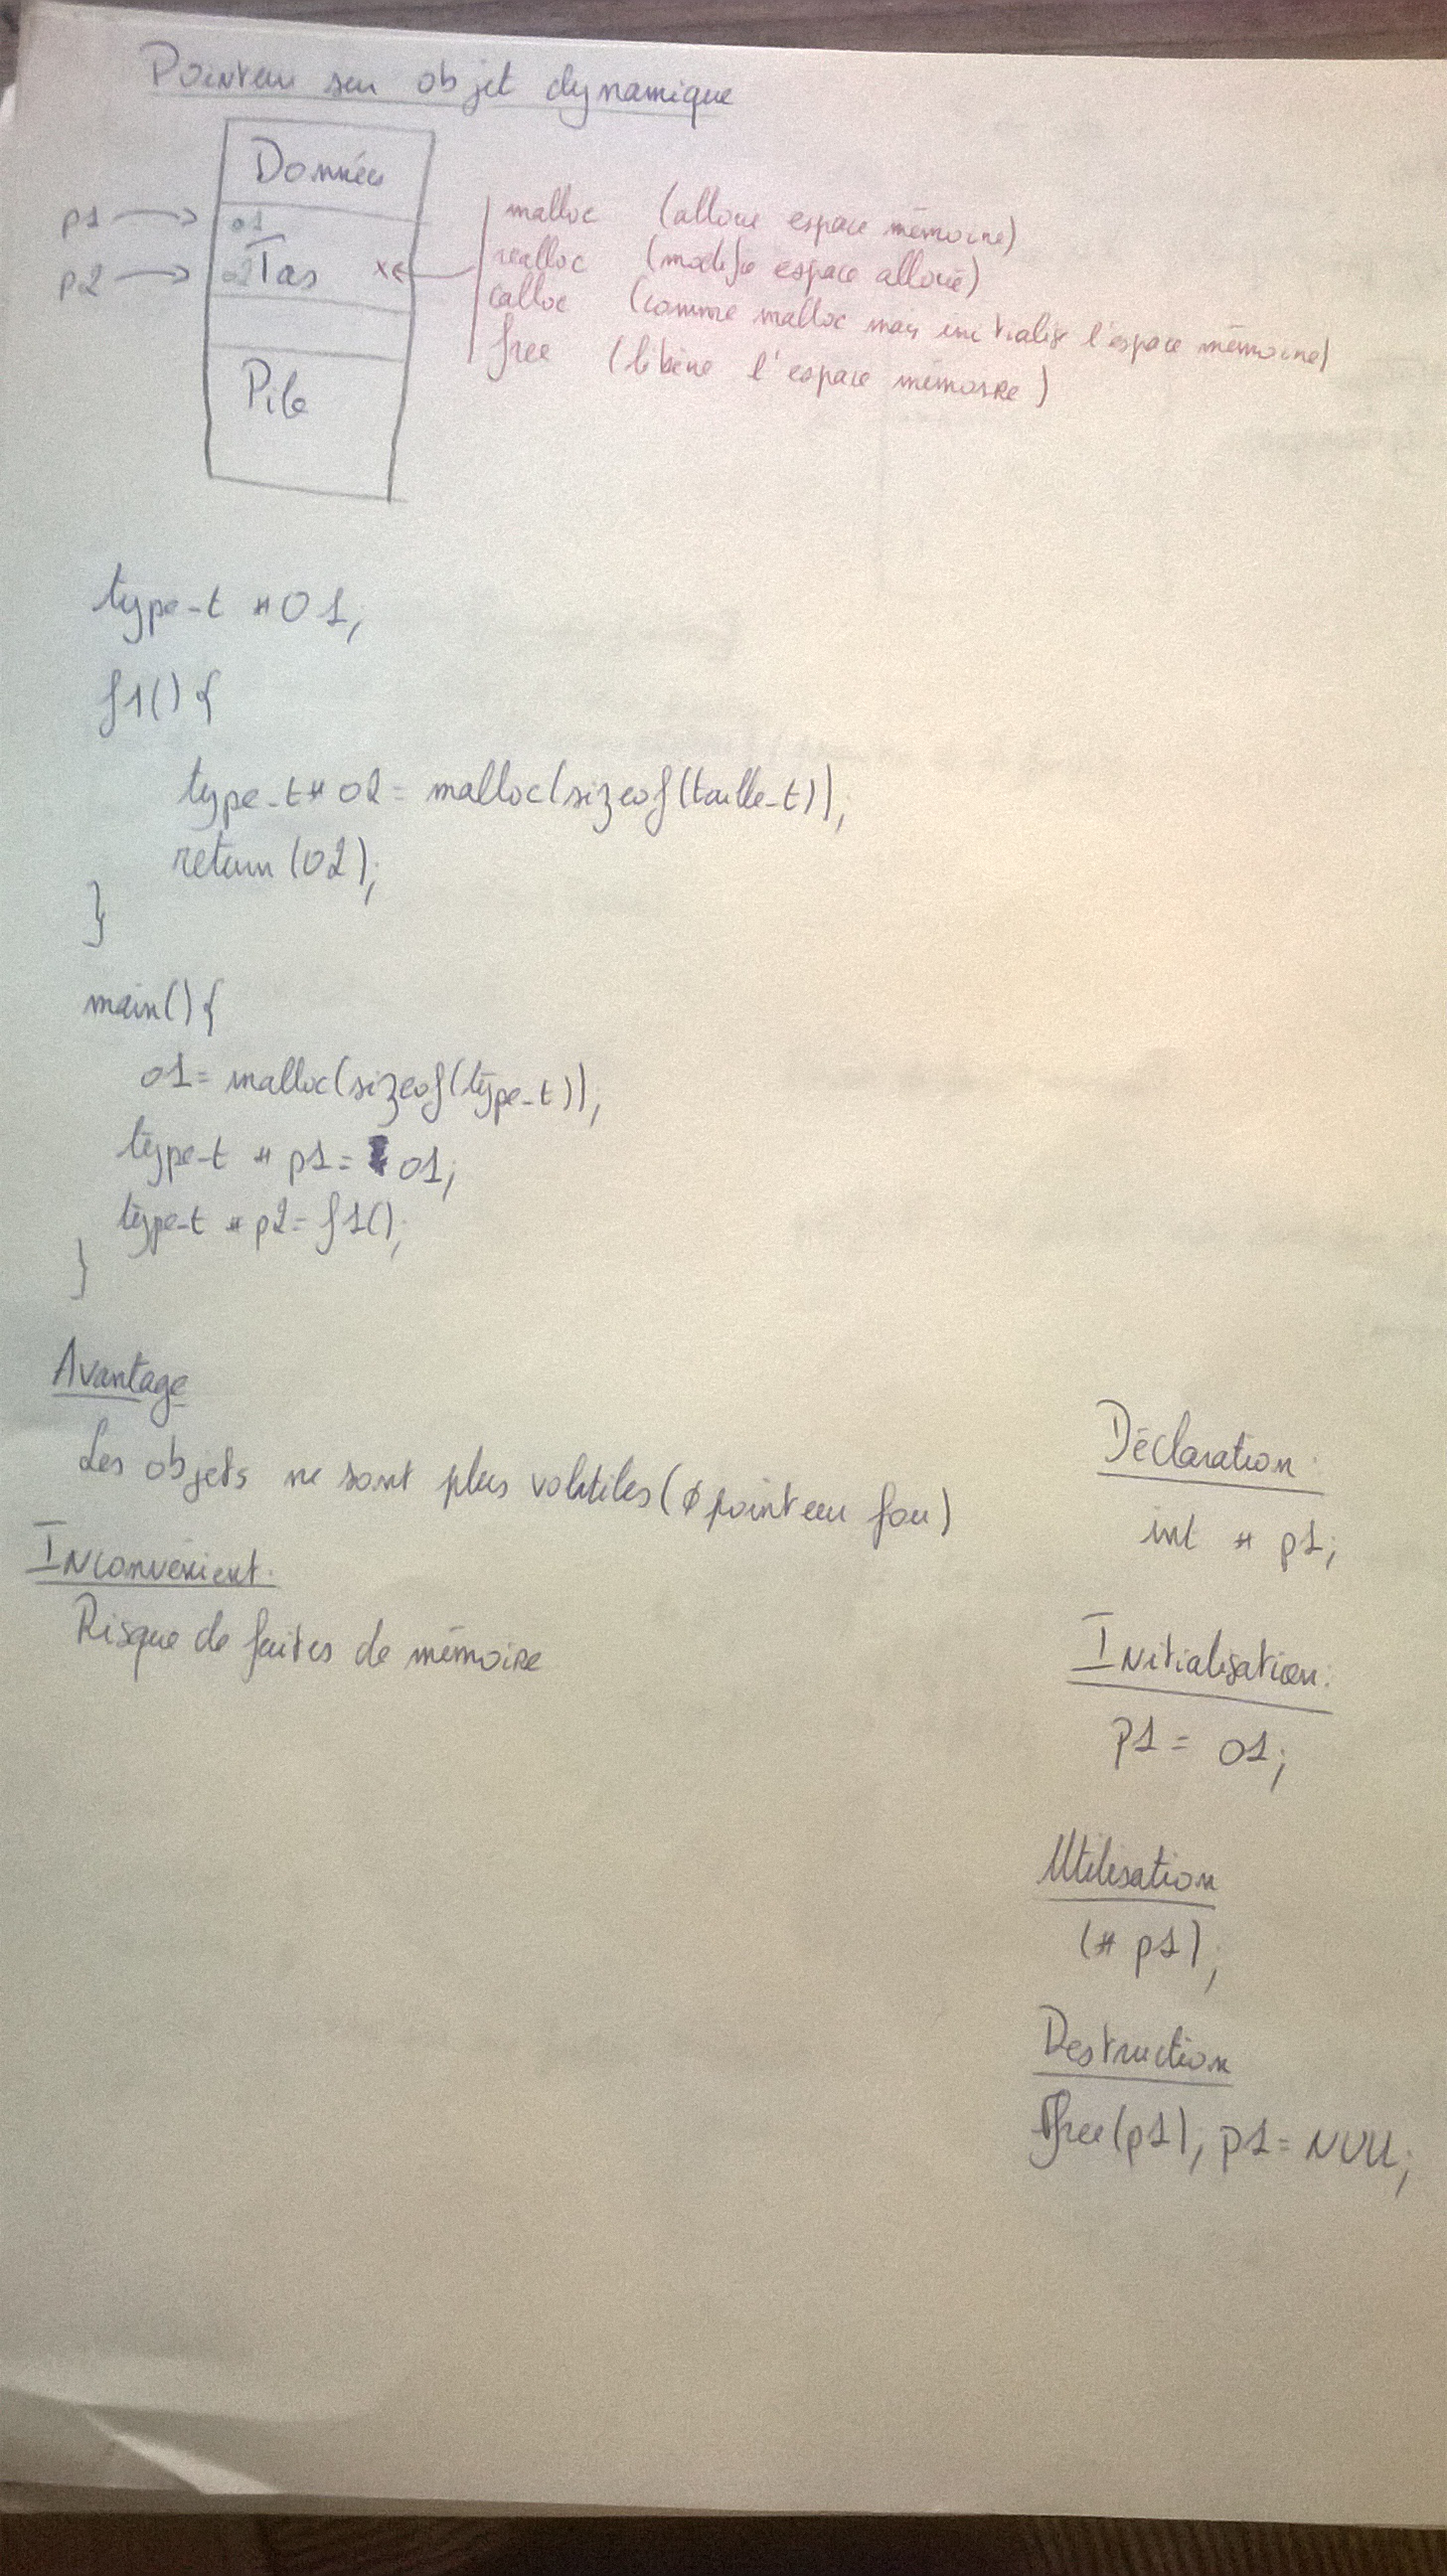 Pointeur sur objet dynamique
Données
p1
o1
malloc (alloue espace mémoire)
p2
o2 Tas
realloc (modifie espace alloué)
calloc (comme malloc mais initialise l'espace mémoire)
free (libère l'espace mémoire)
Pile
type_t *o1;
f1() {
type_t* o2 = malloc(sizeof(taille_t));
return (o2);
}
main() {
o1 = malloc(sizeof(type_t));
type_t * p1 = o1;
type_t * p2 = f1();
}
Avantage
Les objets ne sont plus volatiles (∅ pointeur fou)
Inconvénient.
Risque de fuites de mémoire
Déclaration:
int * p1;
Initialisation:
p1 = o1;
Utilisation
(* p1);
Destruction
free(p1); p1 = NULL;